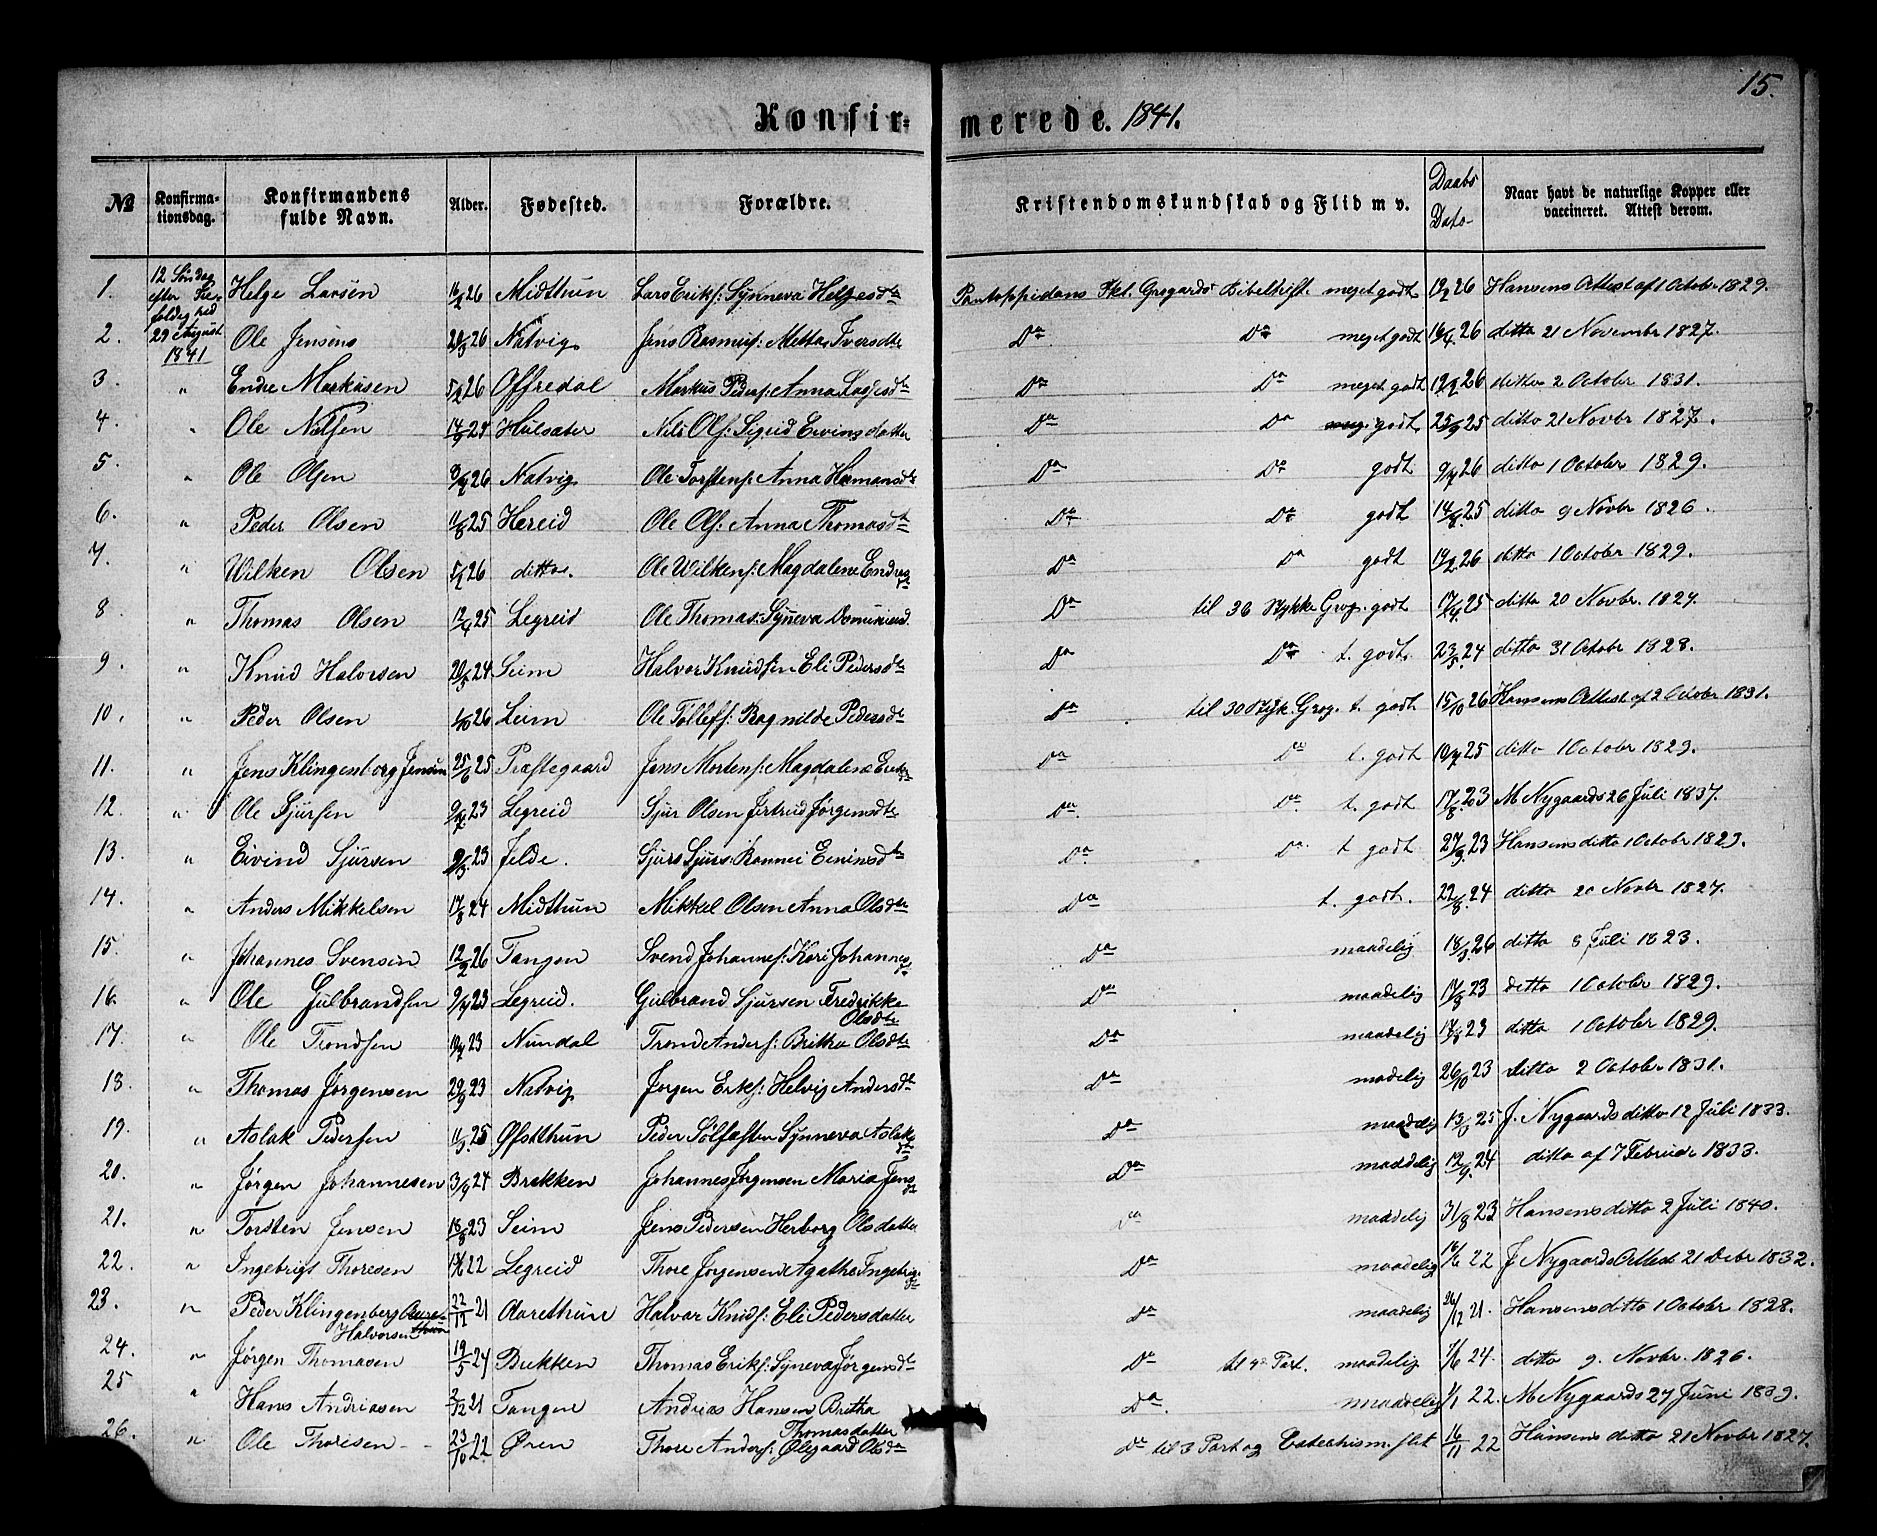 15.
Konfir= merede. 1841.
№ Konfirma-tionsdag. Konfirmandens fulde Navn. Alder. Fødested. Forældre. Kristendomskundskab og Flid m v. Daabs Dato- Naar havt de naturlige Kopper eller vaccineret. Attest derom.
1. 12 Søndag efter Trefoldighed Helge Larsen 26 Midthun Lars Eriks: Synneva Helgesdtr Pantoppidans Fkl. Grøgards Bibelhist. meget godt 26 Hansens Attest af 1 Octobr 1829.
2. 29 August 1841 Ole Jensens 20/3 26 Natvig Jens Rasmus: Metta Iversdtr Do Do meget godt 16/4 26 ditto 21 Novembr 1827.
3. " Endre Markusen 26 Offredal Markus Peders: Anna Lassesdtr Do Do meget godt 26 ditto 2 October 1831.
4. " Ole Nilsen Hulsæter Nils Ols: Sigrid Eivinsdatter Do Do godt 25/9 25 ditto 21 Novbr 1827.
5. " Ole Olsen 26 Natvig Ole Torstens: Anna Hermansdtr Do Do godt 26 ditto 1 October 1829.
6. " Peder Olsen 11/8 25 Hereid Ole Ols: Anna Thomasdtr Do Do godt 14/8 25 ditto 9 Novbr 1826.
7. " Wilken Olsen 26 ditto. Ole Wilkens: Magdalene Endresdtr Do Do godt 26 ditto 1 Octobr 1829.
8. " Thomas Olsen 12/4 25 Legreid Ole Thomas: Syneva Do til 36 Stykke Grøg. godt 17/4 25 ditto 20 Novbr. 1827.
9. " Knud Halvorsen 20/5 24 Seim Halvor Knudsen Eli Pedersdtr Do Do t. godt. 23/5 24 ditto 31 Octobr 1828.
10. " Peder Olsen 26 Seim Ole Tollefs: Ragnilde Pedersdtr Do til 30 Styk. Grøg. t. godt 15/10 26 Hansens Attest af 2 Octobr 1831.
11. " Jens Klingenborg Jensen 25/6 25 Præstegaard Jens Mortens: Magdalena Do Do t. godt 25 ditto 1 Octobr 1829.
12. " Ole Sjursen 23 Legreid Sjur Olsen Jertrud Jørgensdtr Do. Do t. godt 17/8 23 M Nygaards 26 Juli 1837.
13. " Eivind Sjursen 23 Jelde. Sjurs Sjurs: Rannei Do Do t godt 27/9 23 Hansens ditto 1 Octobr 1829.
14. " Anders Mikkelsen 17/8 24 Midthun Mikkel Olsen Anna Olsdtr Do t. godt. 22/8 24 ditto 20 Novbr 1827.
15. " Johannes Svensen 12/2 26 Tangen Svend Johannes: Kari Johannesdtr Do maadelig 18/3 26 ditto 8 Juli 1823.
16. " Ole Gulbrandsen 23 Legreid. Gulbrand Sjursen Fredrikke Olsdtr Do maadelig 23 ditto 1 Octobr 1829.
17. " Ole Trondsen 23 Nundal Trond Anders: Britha Olsdtr Do maadelig 23 ditto 1 October 1829.
18. " Thomas Jørgensen 29/9 23 Natvig Jørgen Eriks: Helvig Andersdtr Do madelig 26/10 23 ditto 2 Octobr 1831.
19. " Aslak Pedersen 25 Øfstthun Peder Solfæsten Synneva Aslaksdtr Do maadelig 25 J. Nygaards ditto 12 Juli 1833.
20. " Jørgen Johannesen 3/9 24 Brekken Johannes Jørgensen Maria Jensdtr Do maadelig 12/9 24 ditto af 7 Februar 1833.
21. " Torsten Jensen 18/8 23 Seim Jens Pedersen Herborg Olsdatter Do maadelig 31/8 23 Hansens ditto 2 Juli 1840.
22. " Ingebrigt Thoresen 22 Legreid Thore Jørgensen Agatha Ingebrigsdtr Do maadelig 16/6 22 J Nygaards Attest 21 Debr 1832.
23. " Peder Klingenberg Halvorsen 22/12 21 Aarethun Halvor Knuds: Eli Pedersdatter Do maadelig 26/12 21. Hansens ditto 1 Octobr 1828.
24. " Jørgen Thomasen 19/5 24 Bukken Thomas Eriks: Syneva Jørgensdtr Do til 4de Part. maadelig 24. ditto 9. Novbr. 1826.
25 " Hans Andreasen 2/12 21 Tangen Andreas Hansen Britha Thomasdatter Do. maadelig 1/1 22. M Nygaards 27 Juni 1839.
26. " Ole Thoresen 23/10 22 Øren Thore Anders: Ølegaard Olsdtr Do til 3 Part og Catechism. flit 16/11 22 Hansens ditto 21 Novbr 1827.